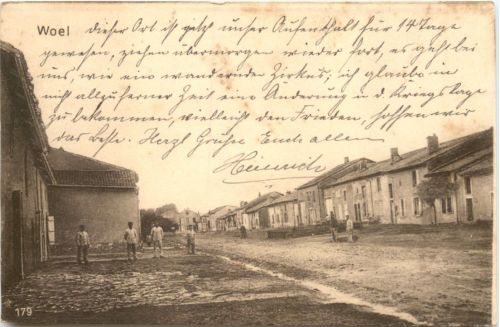 Woel
dieser Ort ist jetzt unser Aufenthalt für 14 Tage
gewesen, ziehen übermorgen wieder fort, es geht bei
uns, wie ein wandernder Zirkus; ich glaube in
nicht allzuferner Zeit eine Änderung in d. Kriegslage
zu bekommen, vielleicht den Frieden, hoffen wir
das Beste. Herzl Grüße Euch allen
Heinrich
179